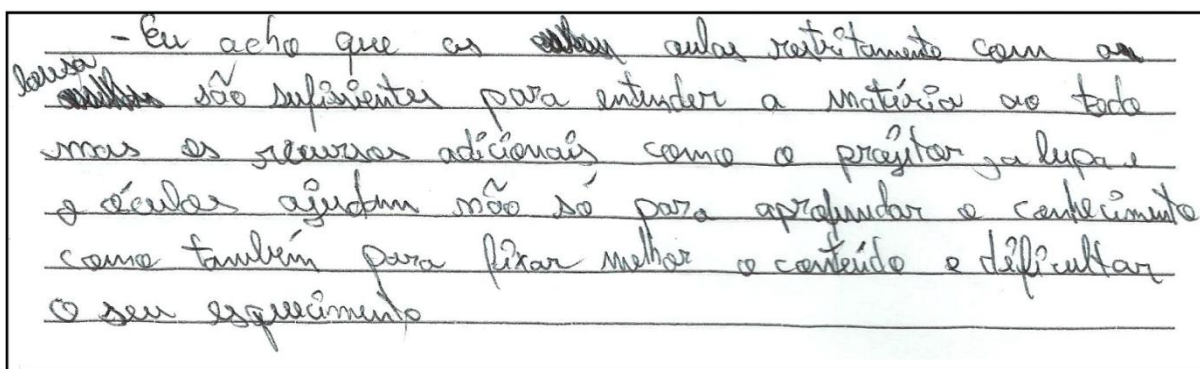 - Eu acho que as aulas restritamente com a
lousa são suficientes para entender a matéria ao todo
mas os recursos adicionais como o projetor, a lupa e
o óculos ajudam não só para aprofundar o conhecimento
como também para fixar melhor o conteúdo e dificultar
o seu esquecimento